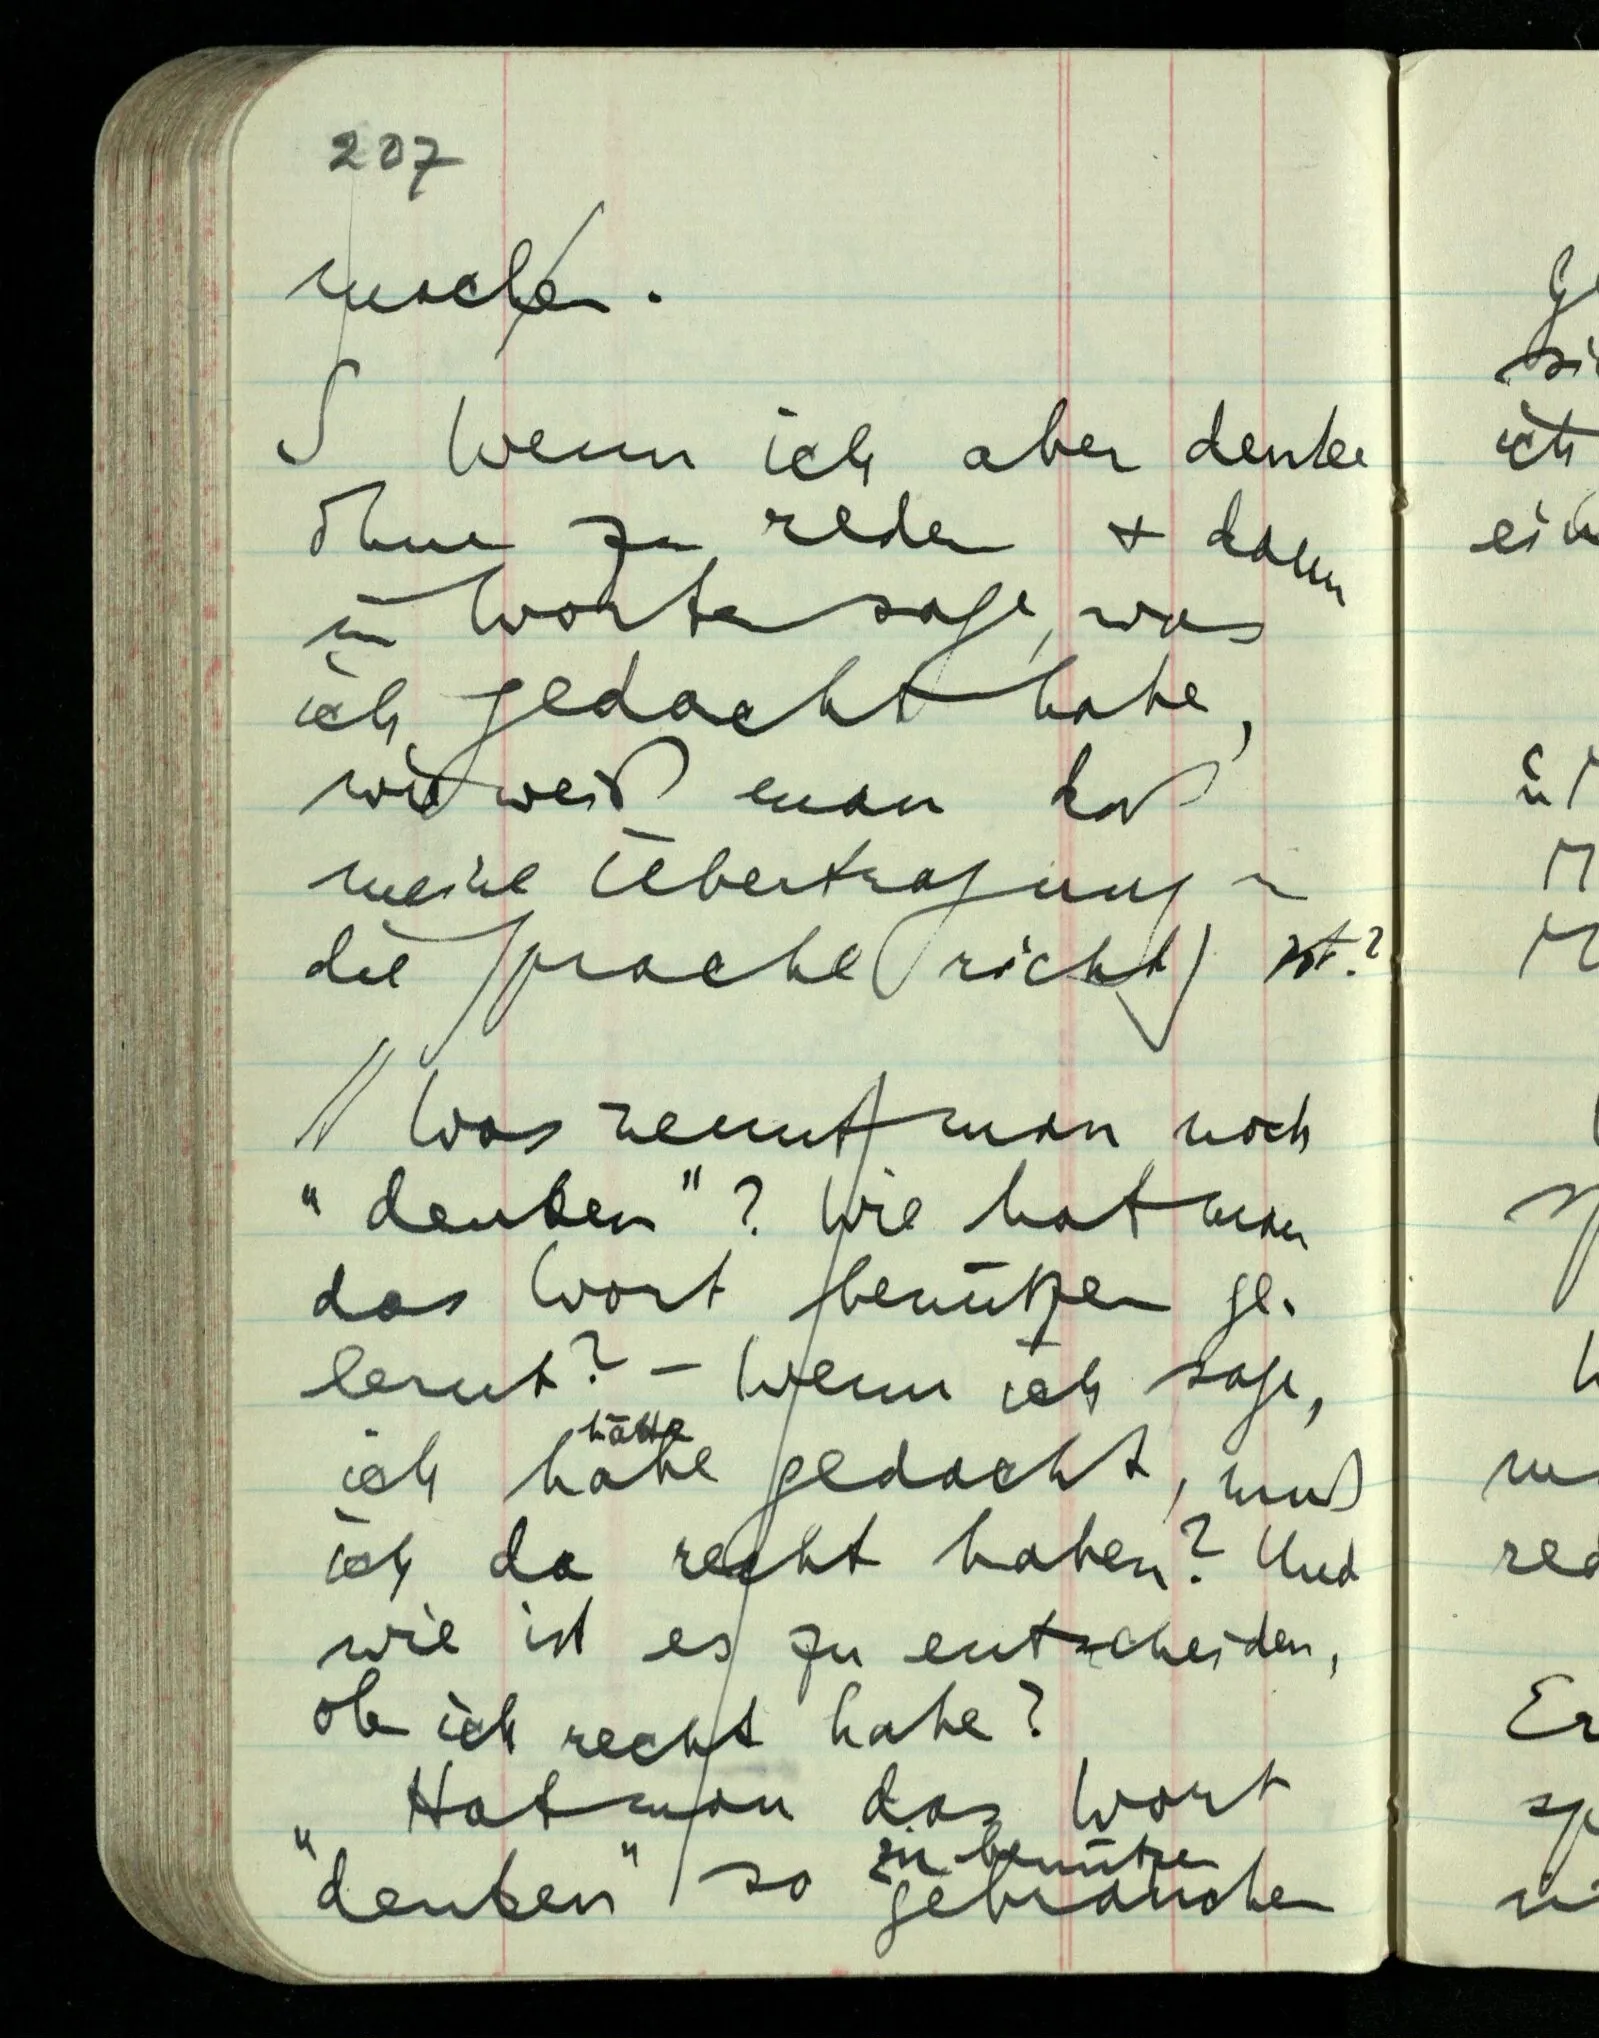 207
machen.
∫ Wenn ich aber denke
ohne zu reden + dann
in Worten sage, was
ich gedacht habe,
wie weiß man daß
meine Übertragung in
die Sprache richtig ist?
// Was nennt man noch
"denken"? Wie hat man
das Wort benützen ge-
lernt? – Wenn ich sage,
hätte
ich habe gedacht, muß
ich da recht haben? Und
wie ist es zu entscheiden,
ob ich recht habe?
Hat man das Wort
zu benützen
"denken" so gebrauchen